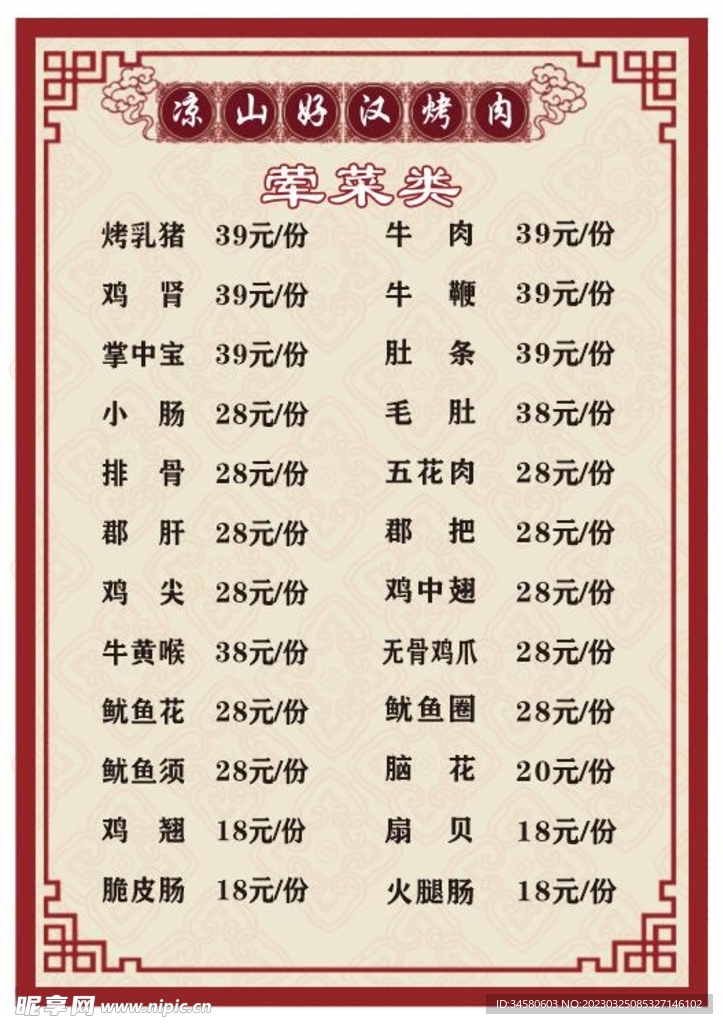 凉山好汉烤肉
荤菜类
烤乳猪 39元/份 牛肉 39元/份
鸡肾 39元/份 牛鞭 39元/份
掌中宝 39元/份 肚条 39元/份
小肠 28元/份 毛肚 38元/份
排骨 28元/份 五花肉 28元/份
郡肝 28元/份 郡把 28元/份
鸡尖 28元/份 鸡中翅 28元/份
牛黄喉 38元/份 无骨鸡爪 28元/份
鱿鱼花 28元/份 鱿鱼圈 28元/份
鱿鱼须 28元/份 脑花 20元/份
鸡翘 18元/份 扇贝 18元/份
脆皮肠 18元/份 火腿肠 18元/份
昵享网 www.nipic.cn
ID:34580603 NO:20230325085327146102